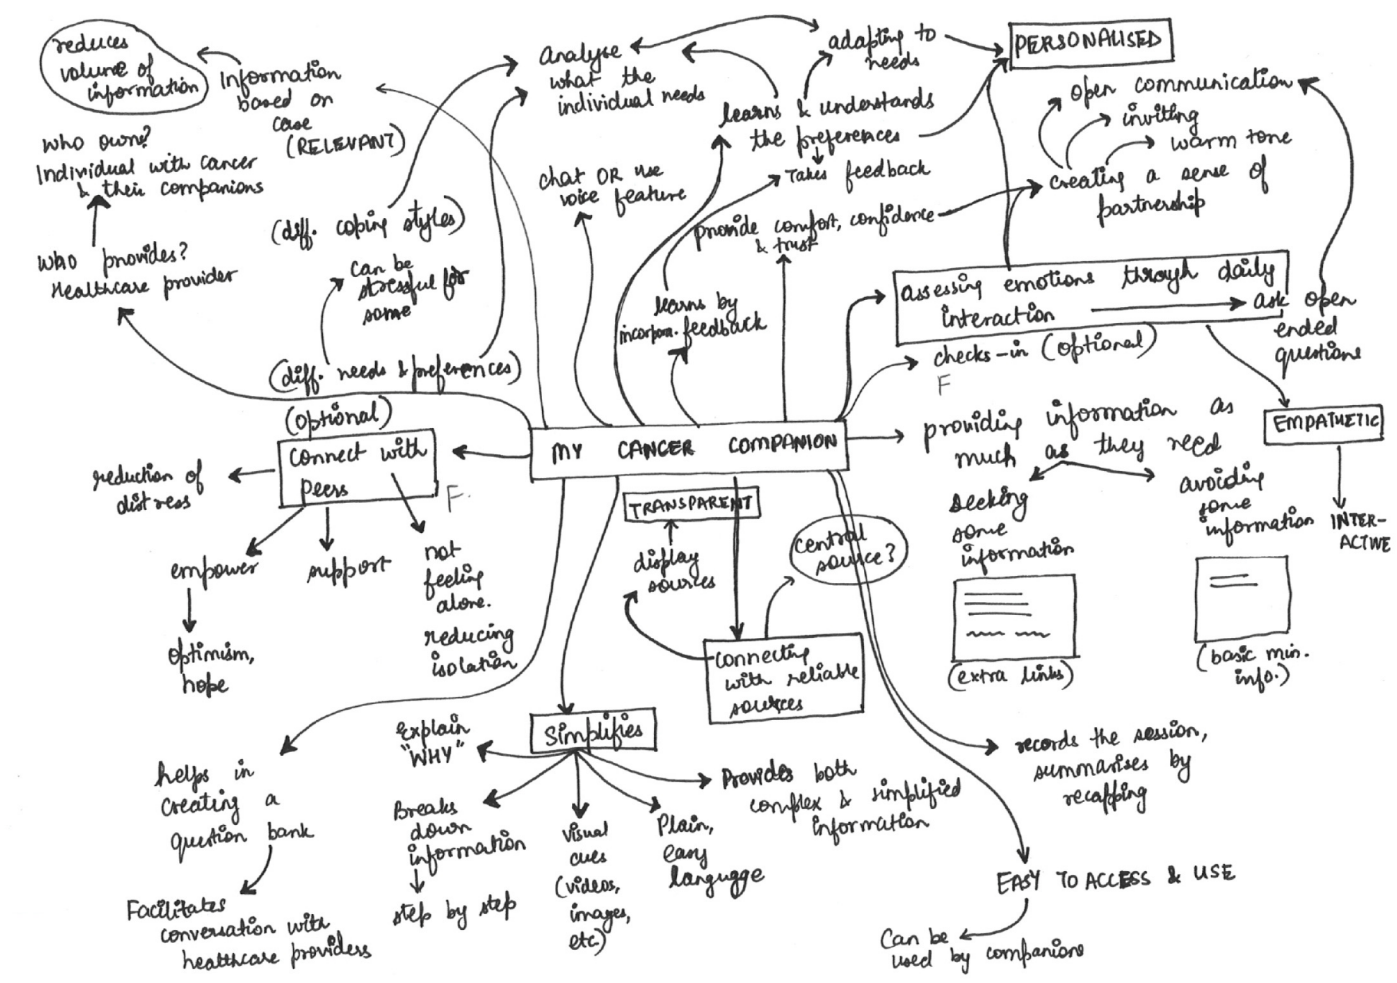 reduces
volume of
information
Information
based on
case
(RELEVANT)
who own?
Individual with cancer
& their companions
Who provides?
Healthcare provider
(diff. coping styles)
can be
stressful for
some
(diff. needs & preferences)
Analyse
what the
individual needs
chat OR use
voice feature
adapting to
needs
learns & understands
the preferences
Takes feedback
provide comfort, confidence
& trust
learns by
incorpora. feedback
PERSONALISED
open communication
inviting
warm tone
creating a sense of
partnership
assessing emotions through daily
interaction
ask open
ended
questions
checks-in (optional)
F
EMPATHETIC
INTER-
ACTIVE
providing information as
much as they need
seeking
some
information
(extra links)
avoiding
some
information
(basic min.
info.)
MY CANCER COMPANION
(optional)
Connect with
Peers
F.
reduction of
distress
empower
Optimism,
hope
support
not
feeling
alone.
reducing
isolation
TRANSPARENT
display
sources
central
source?
connecting
with reliable
sources
Simplifies
Explain
"WHY"
Breaks
down
information
step by step
visual
cues
(videos,
images,
etc)
Plain,
easy
langugge
Provides both
complex & simplified
information
helps in
creating a
question bank
Facilitates
conversation with
healthcare providers
records the session,
summarises by
recapping
EASY TO ACCESS & USE
Can be
used by companions